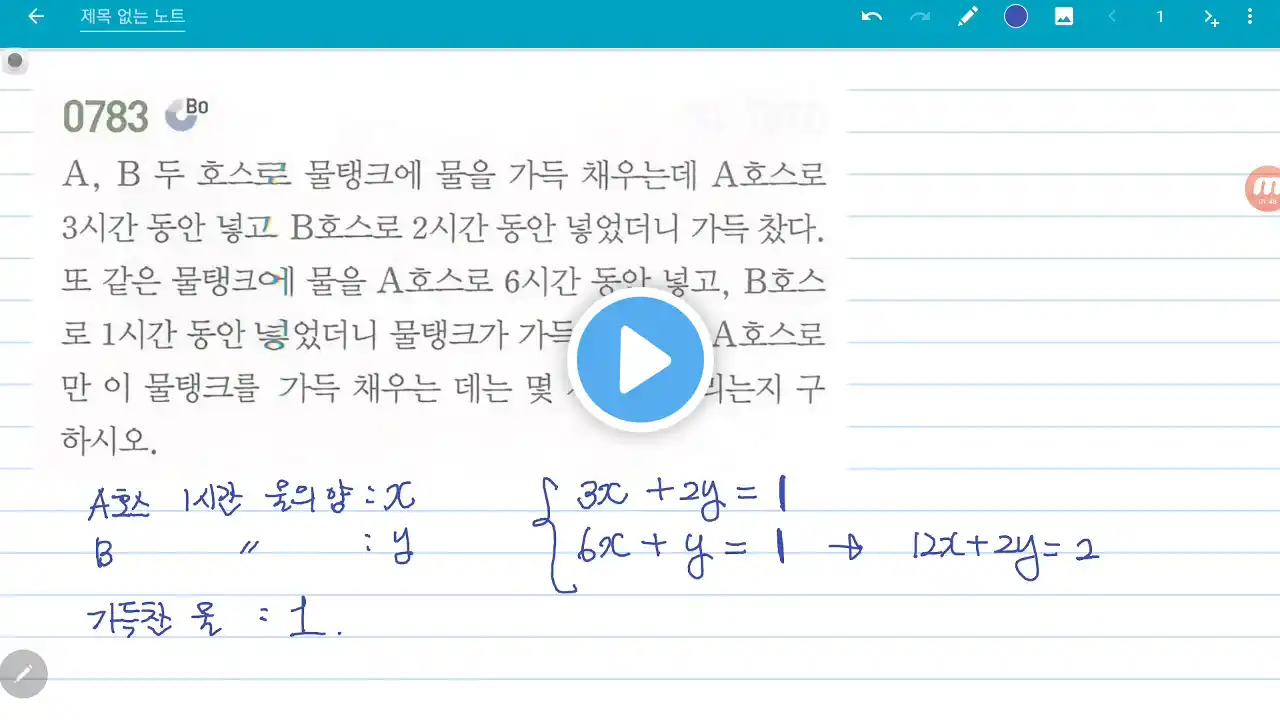 제목 없는 노트
1
0783 B0
A, B 두 호스로 물탱크에 물을 가득 채우는데 A호스로
3시간 동안 넣고 B호스로 2시간 동안 넣었더니 가득 찼다.
또 같은 물탱크에 물을 A호스로 6시간 동안 넣고, B호스
로 1시간 동안 넣었더니 물탱크가 가득 A호스로
만 이 물탱크를 가득 채우는 데는 몇 구
하시오.
A호스 1시간 물의 양 : x
B 〃 : y
가득찬 물 : 1.
3x + 2y = 1
6x + y = 1 → 12x + 2y = 2